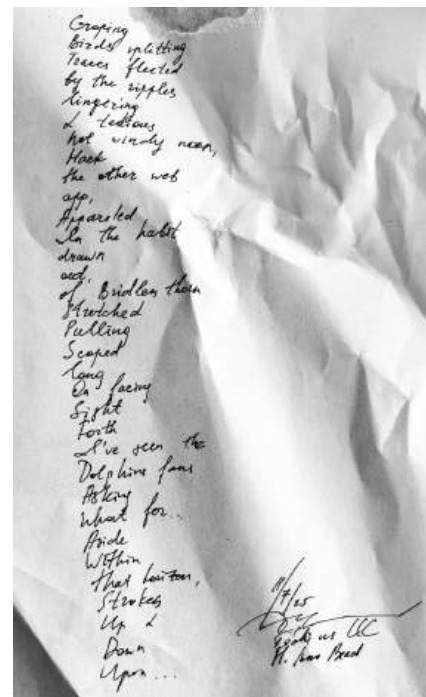 Groping
Birds splitting
Traces flected
by the ripples
lingering
& tedious
hot windy noon,
Hack
the other web
app,
Appareled
In the habit
drawn
out,
of Bridlen thorn
Stretched
Pulling
Scoped
long
On facing
Sight
Forth
I've seen the
Dolphins fans
Asking
What for...
Aside
Within
that horizon,
Strokes
Up &
Down
Upon...
11/7/25